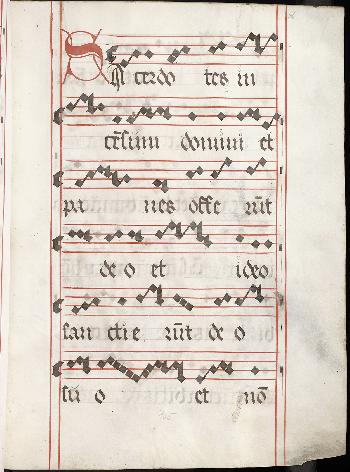 Sacerdo tes in
cēsum domini et
pa nes offe rūt
deo et ideo
sancti e rūt de o
su o et nō